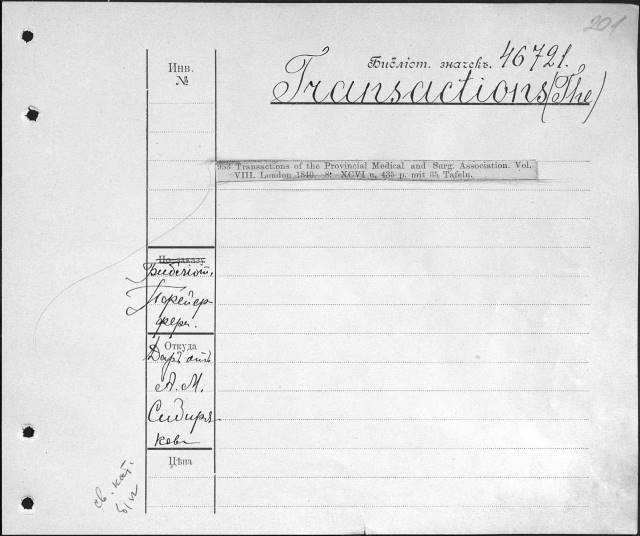 201
Библіот. значекъ. 46721.
Инв.
№
Transactions (The)
953 Transactions of the Provincial Medical and Surg. Association. Vol.
VIII. London 1840. 8°. XCVI u. 435 p. mit 35 Tafeln.
По заказу
Библіот.
Откуда
Даръ отъ
А. М.
Сибиря-
кова
Цѣна
св. кат.